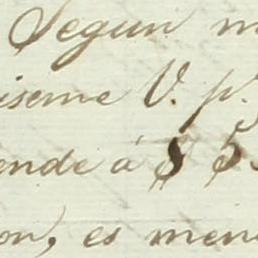 Segun m
iseme V. p.
ende á $ 5
on, es men